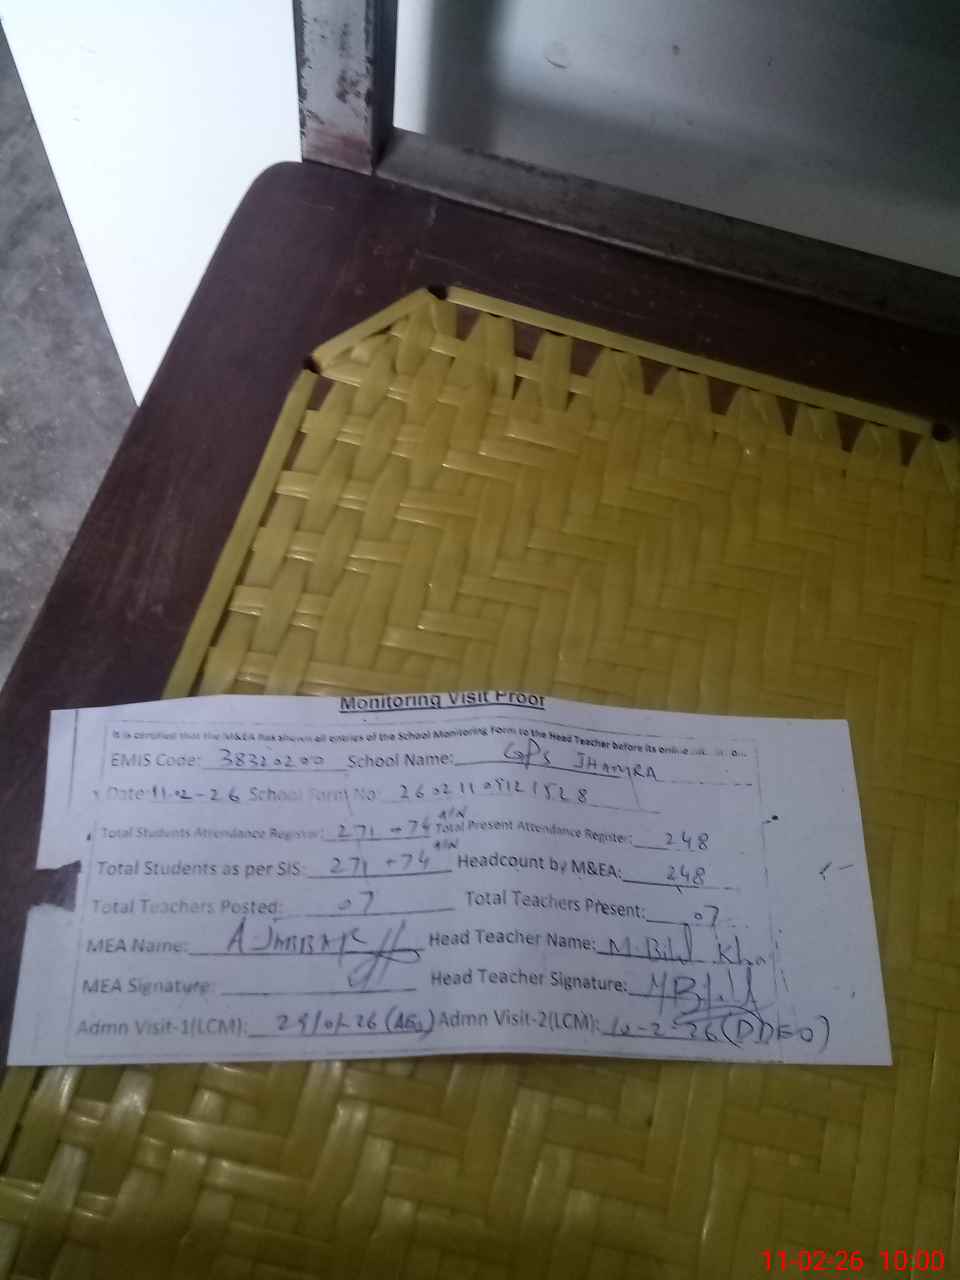 Monitoring Visit Proof
It is certified that the M&EA has shown all entries of the School Monitoring Form to the Head Teacher before its
EMIS Code: 38320200 School Name: GPS JHAMRA
Date: 11-02-26 School Form No: 26021109121528
Total Students Attendance Register: 271 +74 Total Present Attendance Register: 248
Total Students as per SIS: 271 +74 Headcount by M&EA: 248
Total Teachers Posted: 07 Total Teachers Present: 07
MEA Name: A.JABBAR Head Teacher Name: M.Bilal Khan
MEA Signature: Head Teacher Signature: MBilal
Admn Visit-1(LCM): 29/01-26 (AEO) Admn Visit-2(LCM): 10-2-26 (DDEO)
11-02-26 10:00